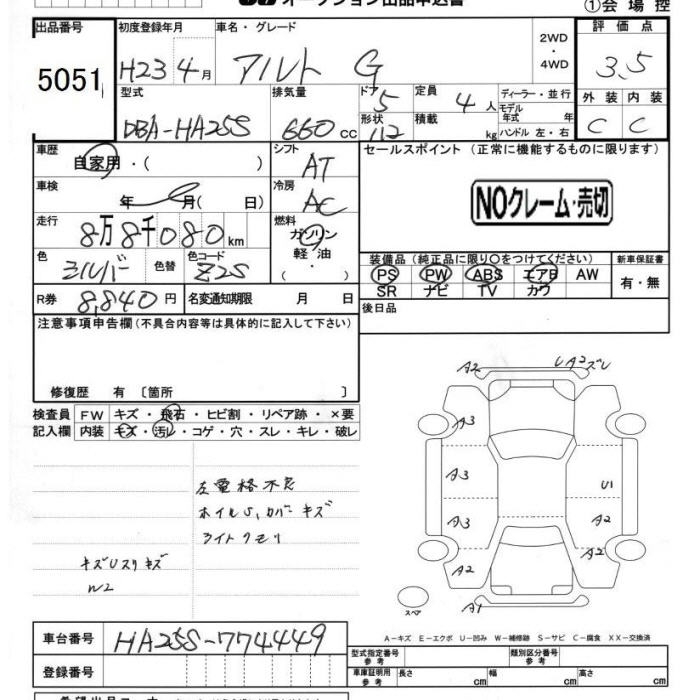 オークション出品申込書
①会場控
出品番号 初度登録年月 車名・グレード 2WD・4WD 評価点
5051 H23 4月 アルト G 3.5
型式 排気量 ドア 定員 ディーラー・並行 外装 内装
DBA-HA25S 660cc 5 4人 モデル年式 年 C C
形状 積載 kg ハンドル 左・右
車歴 シフト セールスポイント (正常に機能するものに限ります)
自家用・( ) AT
車検 冷房 NOクレーム・売切
年 月( 日) AC
走行 燃料
8万8千080km ガソリン
軽油
色 色替 色コード ( ・ ) 装備品 (純正品に限り〇をつけてください) 新車保証書
シルバー Z2S PS PW ABS エアB AW 有・無
SR ナビ TV カワ
R券 8,840円 名変通知期限 月 日 後日品
注意事項申告欄(不具合内容等は具体的に記入して下さい)
修復歴 有 〔箇所 〕
検査員 FW キズ・飛石・ヒビ割・リペア跡・×要
記入欄 内装 キズ・汚レ・コゲ・穴・スレ・キレ・破レ
左電格不良
ホイルS,カバーキズ
ライトクモリ
キズUスリキズ
W2
A2 UA2ズレ
A3
A3 U1
A3 A2
A2 A2
A1
スペア
A-キズ E-エクボ U-凹み W-補修跡 S-サビ C-腐食 XX-交換済
車台番号 HA25S-774449
型式指定番号 参考 類別区分番号 参考
登録番号 車庫証明用 参考 長さ cm 幅 cm 高さ cm